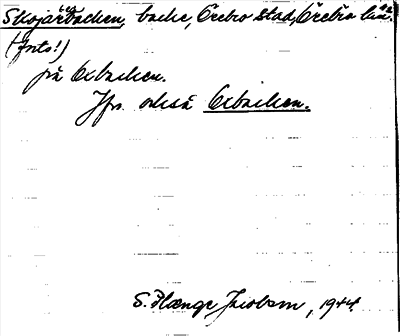 Skojarbacken, backe, Örebro stad, Örebro län.
(foto!)
på Oxbacken.
Jfr. också Oxbacken.
S. Plænge Jacobson, 1944.